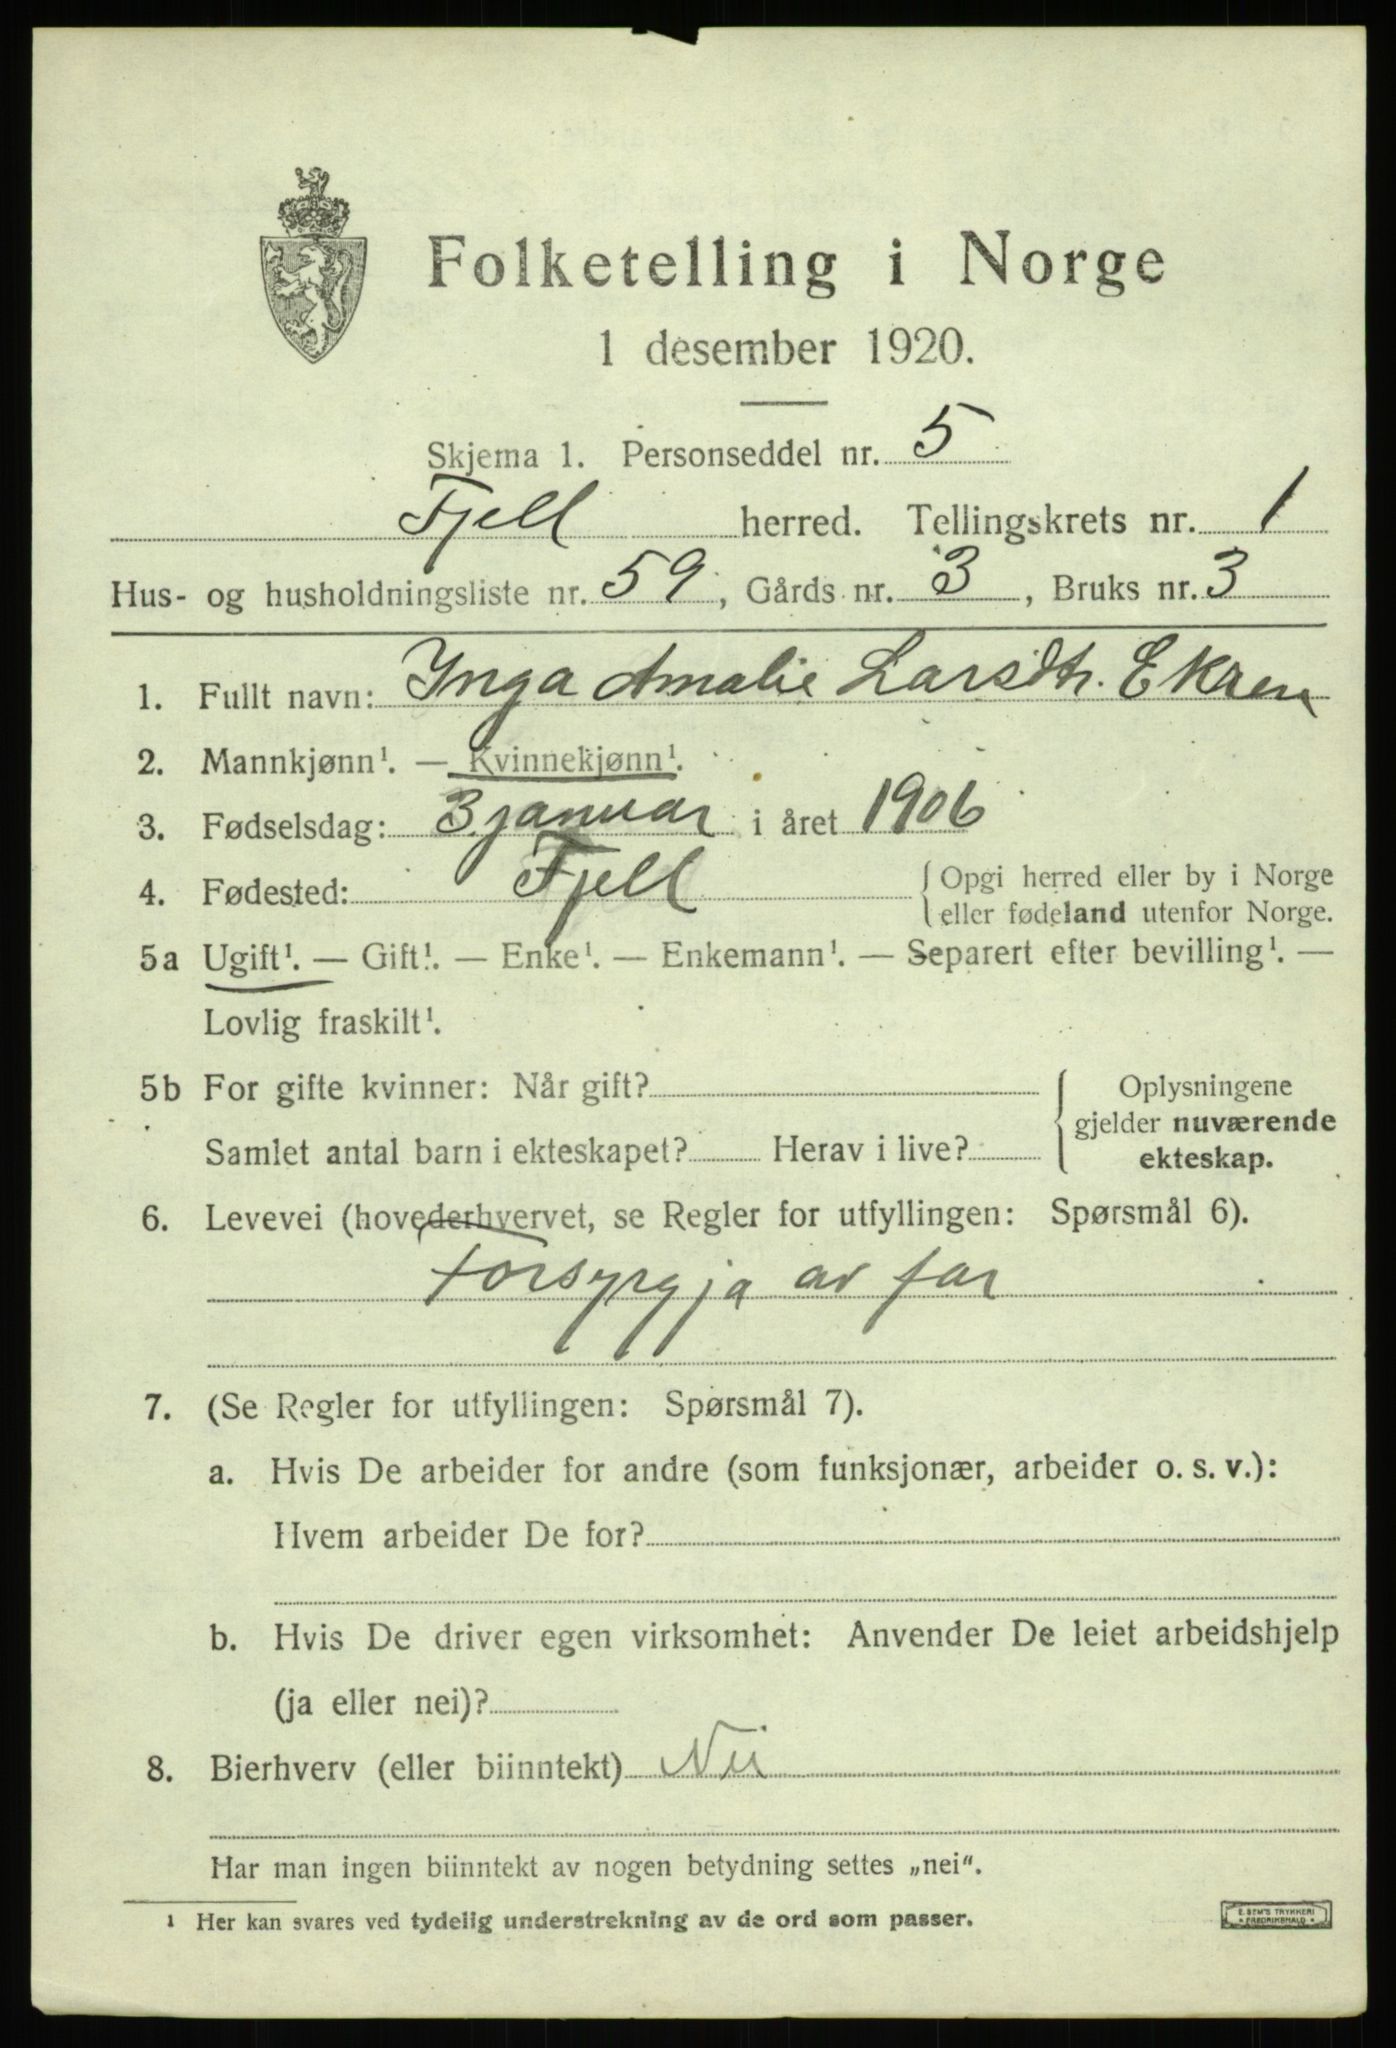 Folketelling i Norge
1 desember 1920.
Skjema 1. Personseddel nr. 5
Fjell herred. Tellingskrets nr. 1
Hus- og husholdningsliste nr. 59, Gårds nr. 3, Bruks nr. 3
1. Fullt navn: Inga Amalie Larsdtr. Ekren
2. Mannkjønn¹. — Kvinnekjønn¹.
3. Fødselsdag: 3. januar i året 1906
4. Fødested: Fjell { Opgi herred eller by i Norge
eller fødeland utenfor Norge.
5a Ugift¹. — Gift¹. — Enke¹. — Enkemann¹. — Separert efter bevilling¹. —
Lovlig fraskilt¹.
5b For gifte kvinner: Når gift? { Oplysningene
gjelder nuværende
Samlet antal barn i ekteskapet? Herav i live? ekteskap.
6. Levevei (hovederhvervet, se Regler for utfyllingen: Spørsmål 6).
Forsyrgja av far
7. (Se Regler for utfyllingen: Spørsmål 7).
a. Hvis De arbeider for andre (som funksjonær, arbeider o. s. v.):
Hvem arbeider De for?
b. Hvis De driver egen virksomhet: Anvender De leiet arbeidshjelp
(ja eller nei)?
8. Bierhverv (eller biinntekt) Nei
Har man ingen biinntekt av nogen betydning settes „nei“.
¹ Her kan svares ved tydelig understrekning av de ord som passer.
E. SEM'S TRYKKERI
* FREDRIKSHALD *